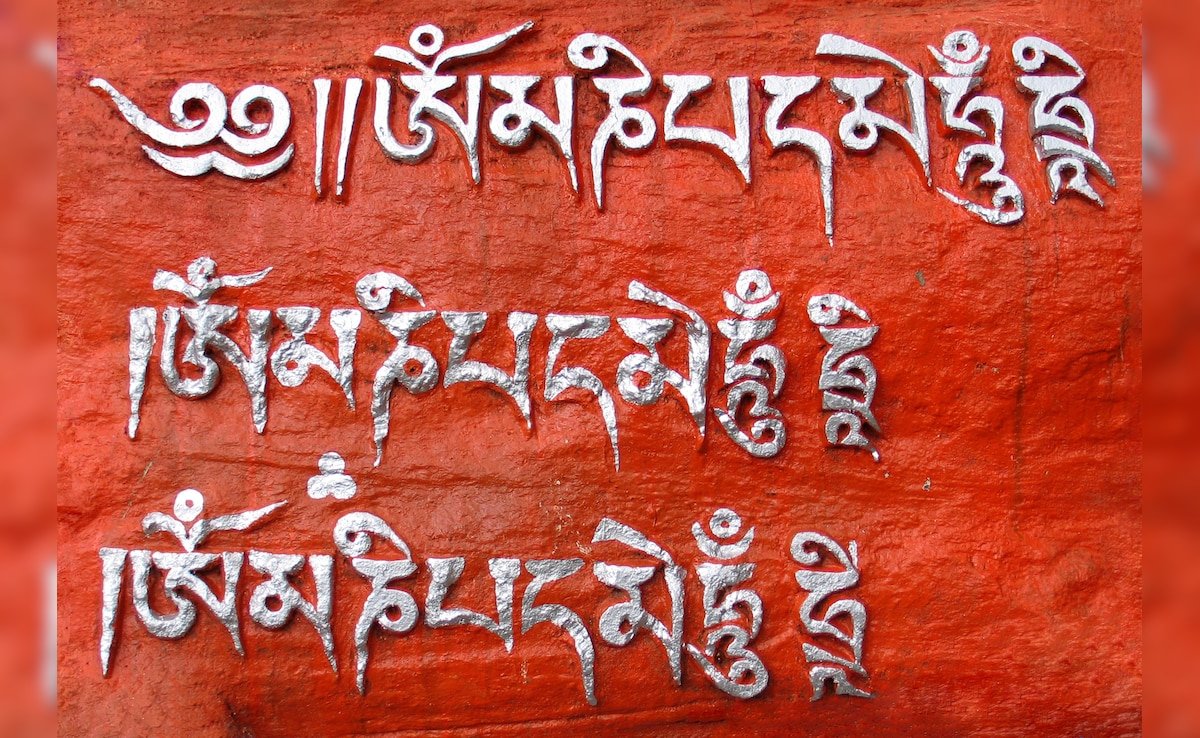 ༄༅།།ཨོཾམཎིཔདམེཧཱུྃ ཧྲཱི
།ཨོཾམཎིཔདམེཧཱུྃ ཧྲཱི
།ཨོཾམཎིཔདམེཧཱུྃ ཧྲཱི